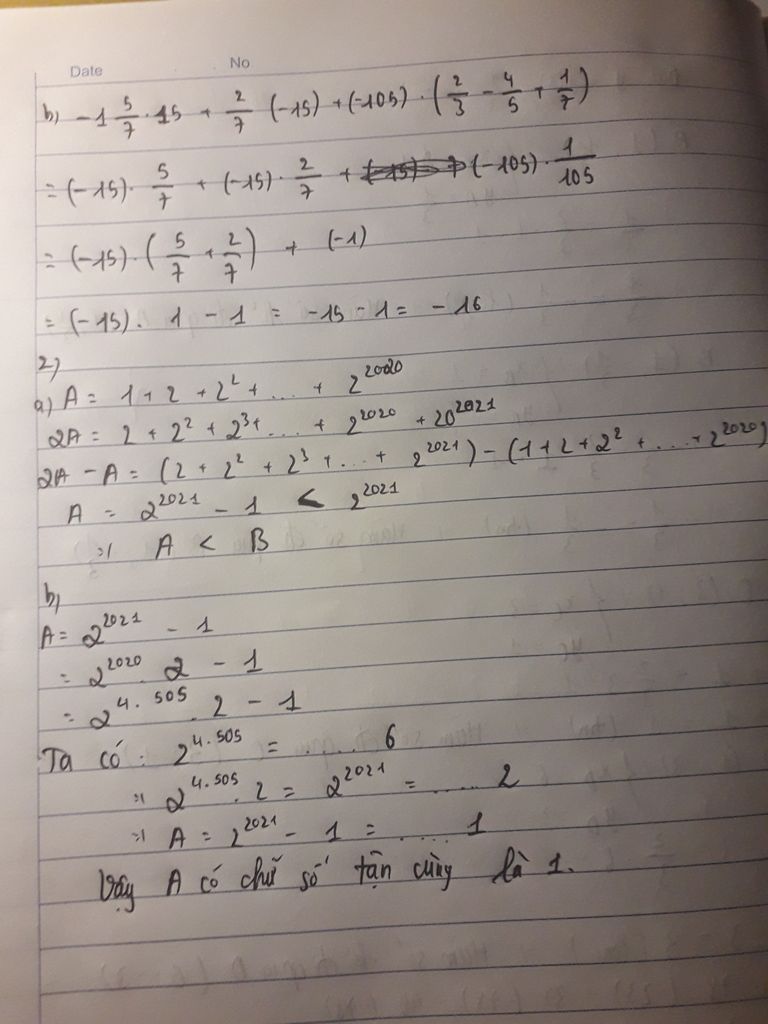 Date No
b) -1 5/7 . 15 + 2/7 (-15) + (-105) . (2/3 - 4/5 + 1/7)
= (-15) . 5/7 + (-15) . 2/7 + (-105) . 1/105
= (-15) . (5/7 + 2/7) + (-1)
= (-15) . 1 - 1 = -15 - 1 = -16
2)
a) A = 1 + 2 + 2² + ... + 2²⁰²⁰
2A = 2 + 2² + 2³ + ... + 2²⁰²⁰ + 20²⁰²¹
2A - A = (2 + 2² + 2³ + ... + 2²⁰²¹) - (1 + 2 + 2² + ... + 2²⁰²⁰)
A = 2²⁰²¹ - 1 < 2²⁰²¹
=) A < B
b)
A = 2²⁰²¹ - 1
= 2²⁰²⁰ . 2 - 1
= 2⁴·⁵⁰⁵ . 2 - 1
Ta có : 2⁴·⁵⁰⁵ = ...... 6
=) 2⁴·⁵⁰⁵ . 2 = 2²⁰²¹ = ..... 2
=) A = 2²⁰²¹ - 1 = ..... 1
Vậy A có chữ số tận cùng là 1.